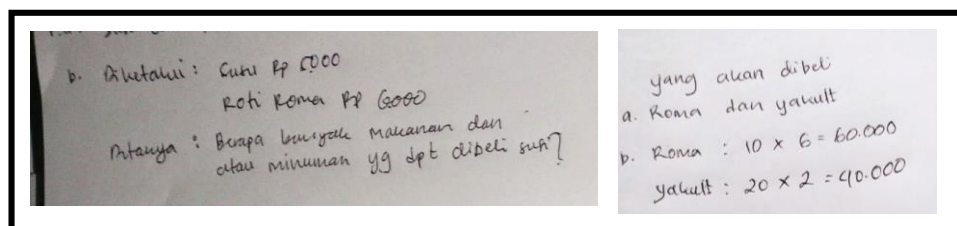 b. Diketahui : Susu Rp 5000
Roti Roma Rp 6000
Ditanya : Berapa banyak makanan dan
atau minuman yg dpt dibeli
yang akan dibeli
a. Roma dan yakult
b. Roma : 10 x 6 = 60.000
yakult : 20 x 2 = 40.000